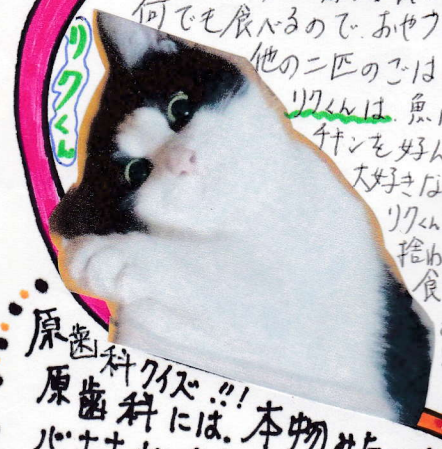 リクくん
何でも食べるので、おやつ
他の二匹のごは
リクくんは、魚
チキンを好ん
大好きな
リクくん
捨
食
原歯科クイズ!!!
原歯科には、本物
バナナ